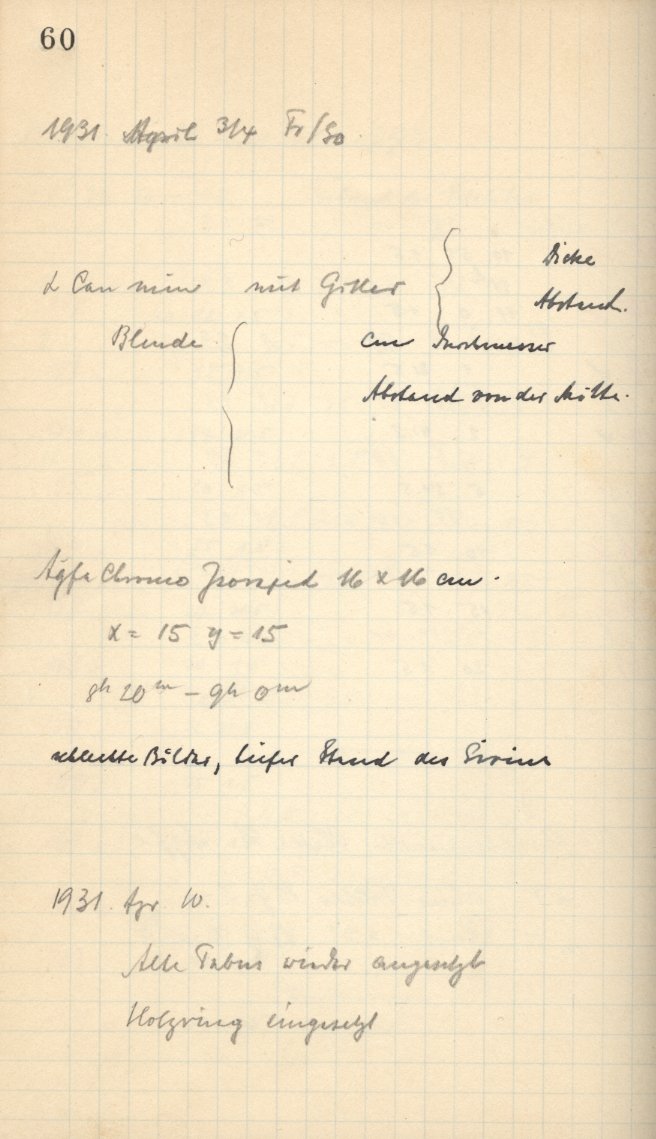 60
1931 April 3/4 Fr/So
α Can min mit Gitter { Dicke
Abstand.
Blende { cm Durchmesser
Abstand von der Mitte.
Agfa Chromo Isorapid 16 x 16 cm.
x = 15 y = 15
8h 20m – 9h 0m
schlechte Bilder, tiefer Stand des Sirius
1931. Apr 10.
Alte Tubus wieder angesetzt
Holzring eingesetzt